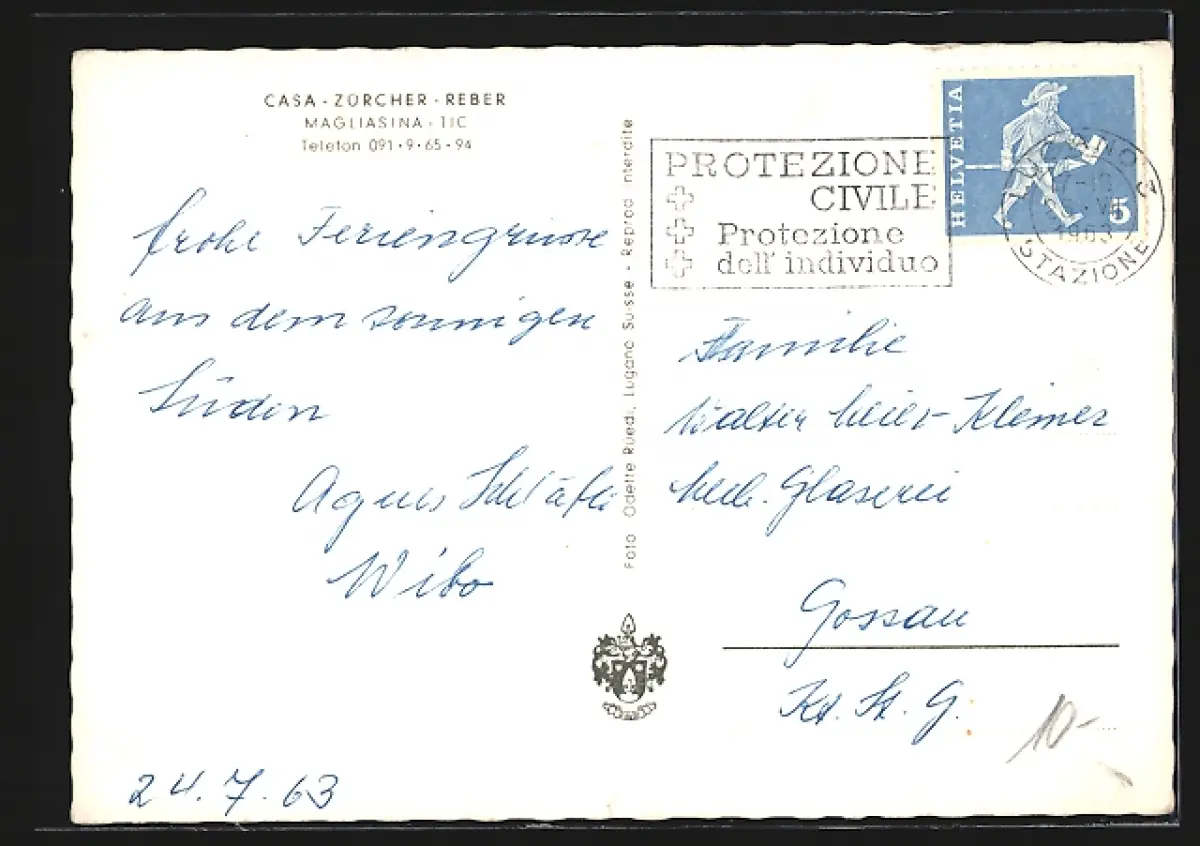 CASA - ZÜRCHER - REBER
MAGLIASINA - TIC
Telefon 091 · 9 · 65 · 94
frohe Feriengrüsse
aus dem sonnigen
Süden
Agnes
Wibo
24. 7. 63
Foto Odette Ruedi, Lugano Suisse - Reprod interdite
PROTEZIONE
CIVILE
Protezione
dell' individuo
HELVETIA
5
3
1963
STAZIONE
Familie
Walter Meier-Klemer
Glaserei
Gossau
Kt. St. G.
10-